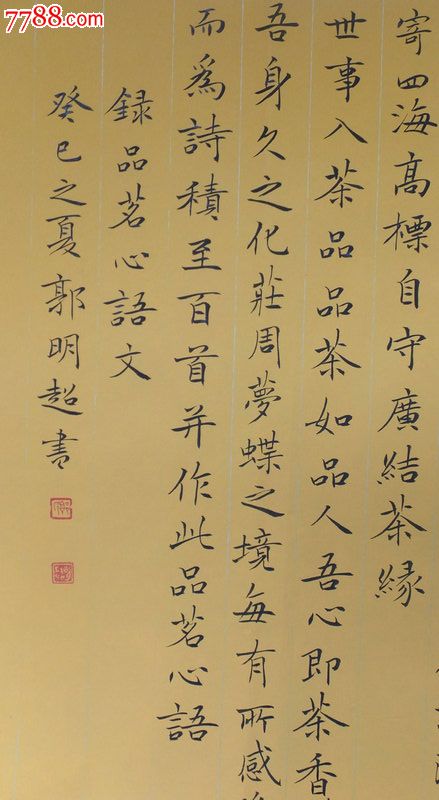 7788.com
寄四海高標自守廣結茶緣
世事入茶品品茶如品人吾心即茶香
吾身久之化莊周夢蝶之境每有所感
而爲詩積至百首并作此品茗心語
録品茗心語文
癸巳之夏郭明超書